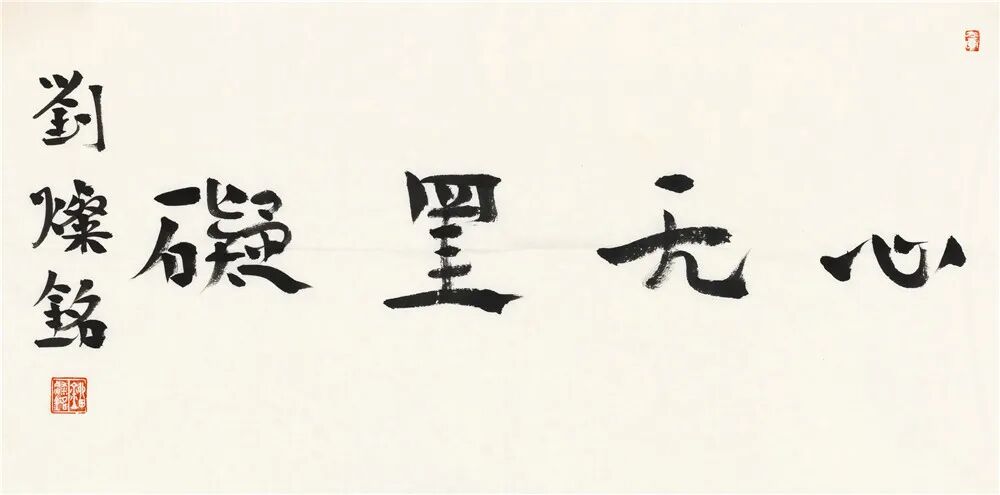 心无罣礙
劉燦銘